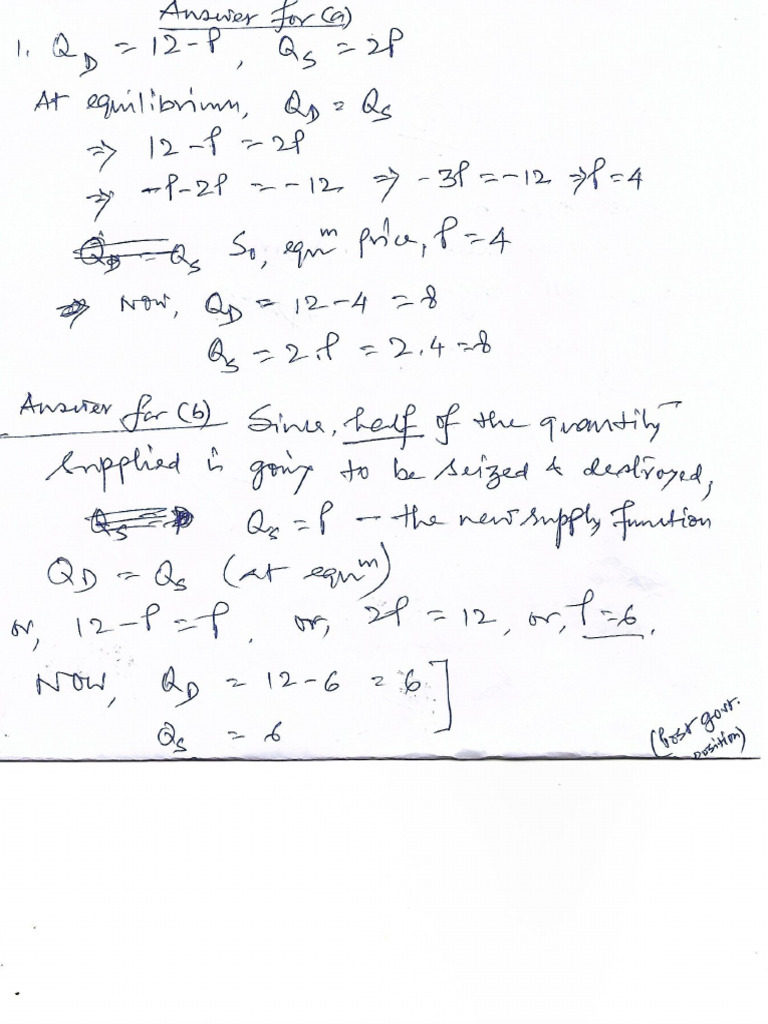 Answer for (a)
1. Q_D = 12-P, Q_S = 2P
At equilibrium, Q_D = Q_S
⇒ 12-P = 2P
⇒ -P-2P = -12 ⇒ -3P = -12 ⇒ P = 4
Q_D = Q_S So, equⁿᵐ price, P = 4
⇒ Now, Q_D = 12-4 = 8
Q_S = 2.P = 2.4 = 8
Answer for (b) Since, half of the quantity
supplied is going to be seized & destroyed,
Q_S = P — the new supply function
Q_D = Q_S (at equⁿᵐ)
or, 12-P = P, or, 2P = 12, or, P = 6.
Now, Q_D = 12-6 = 6 ]
Q_S = 6
(Post govt.
position)